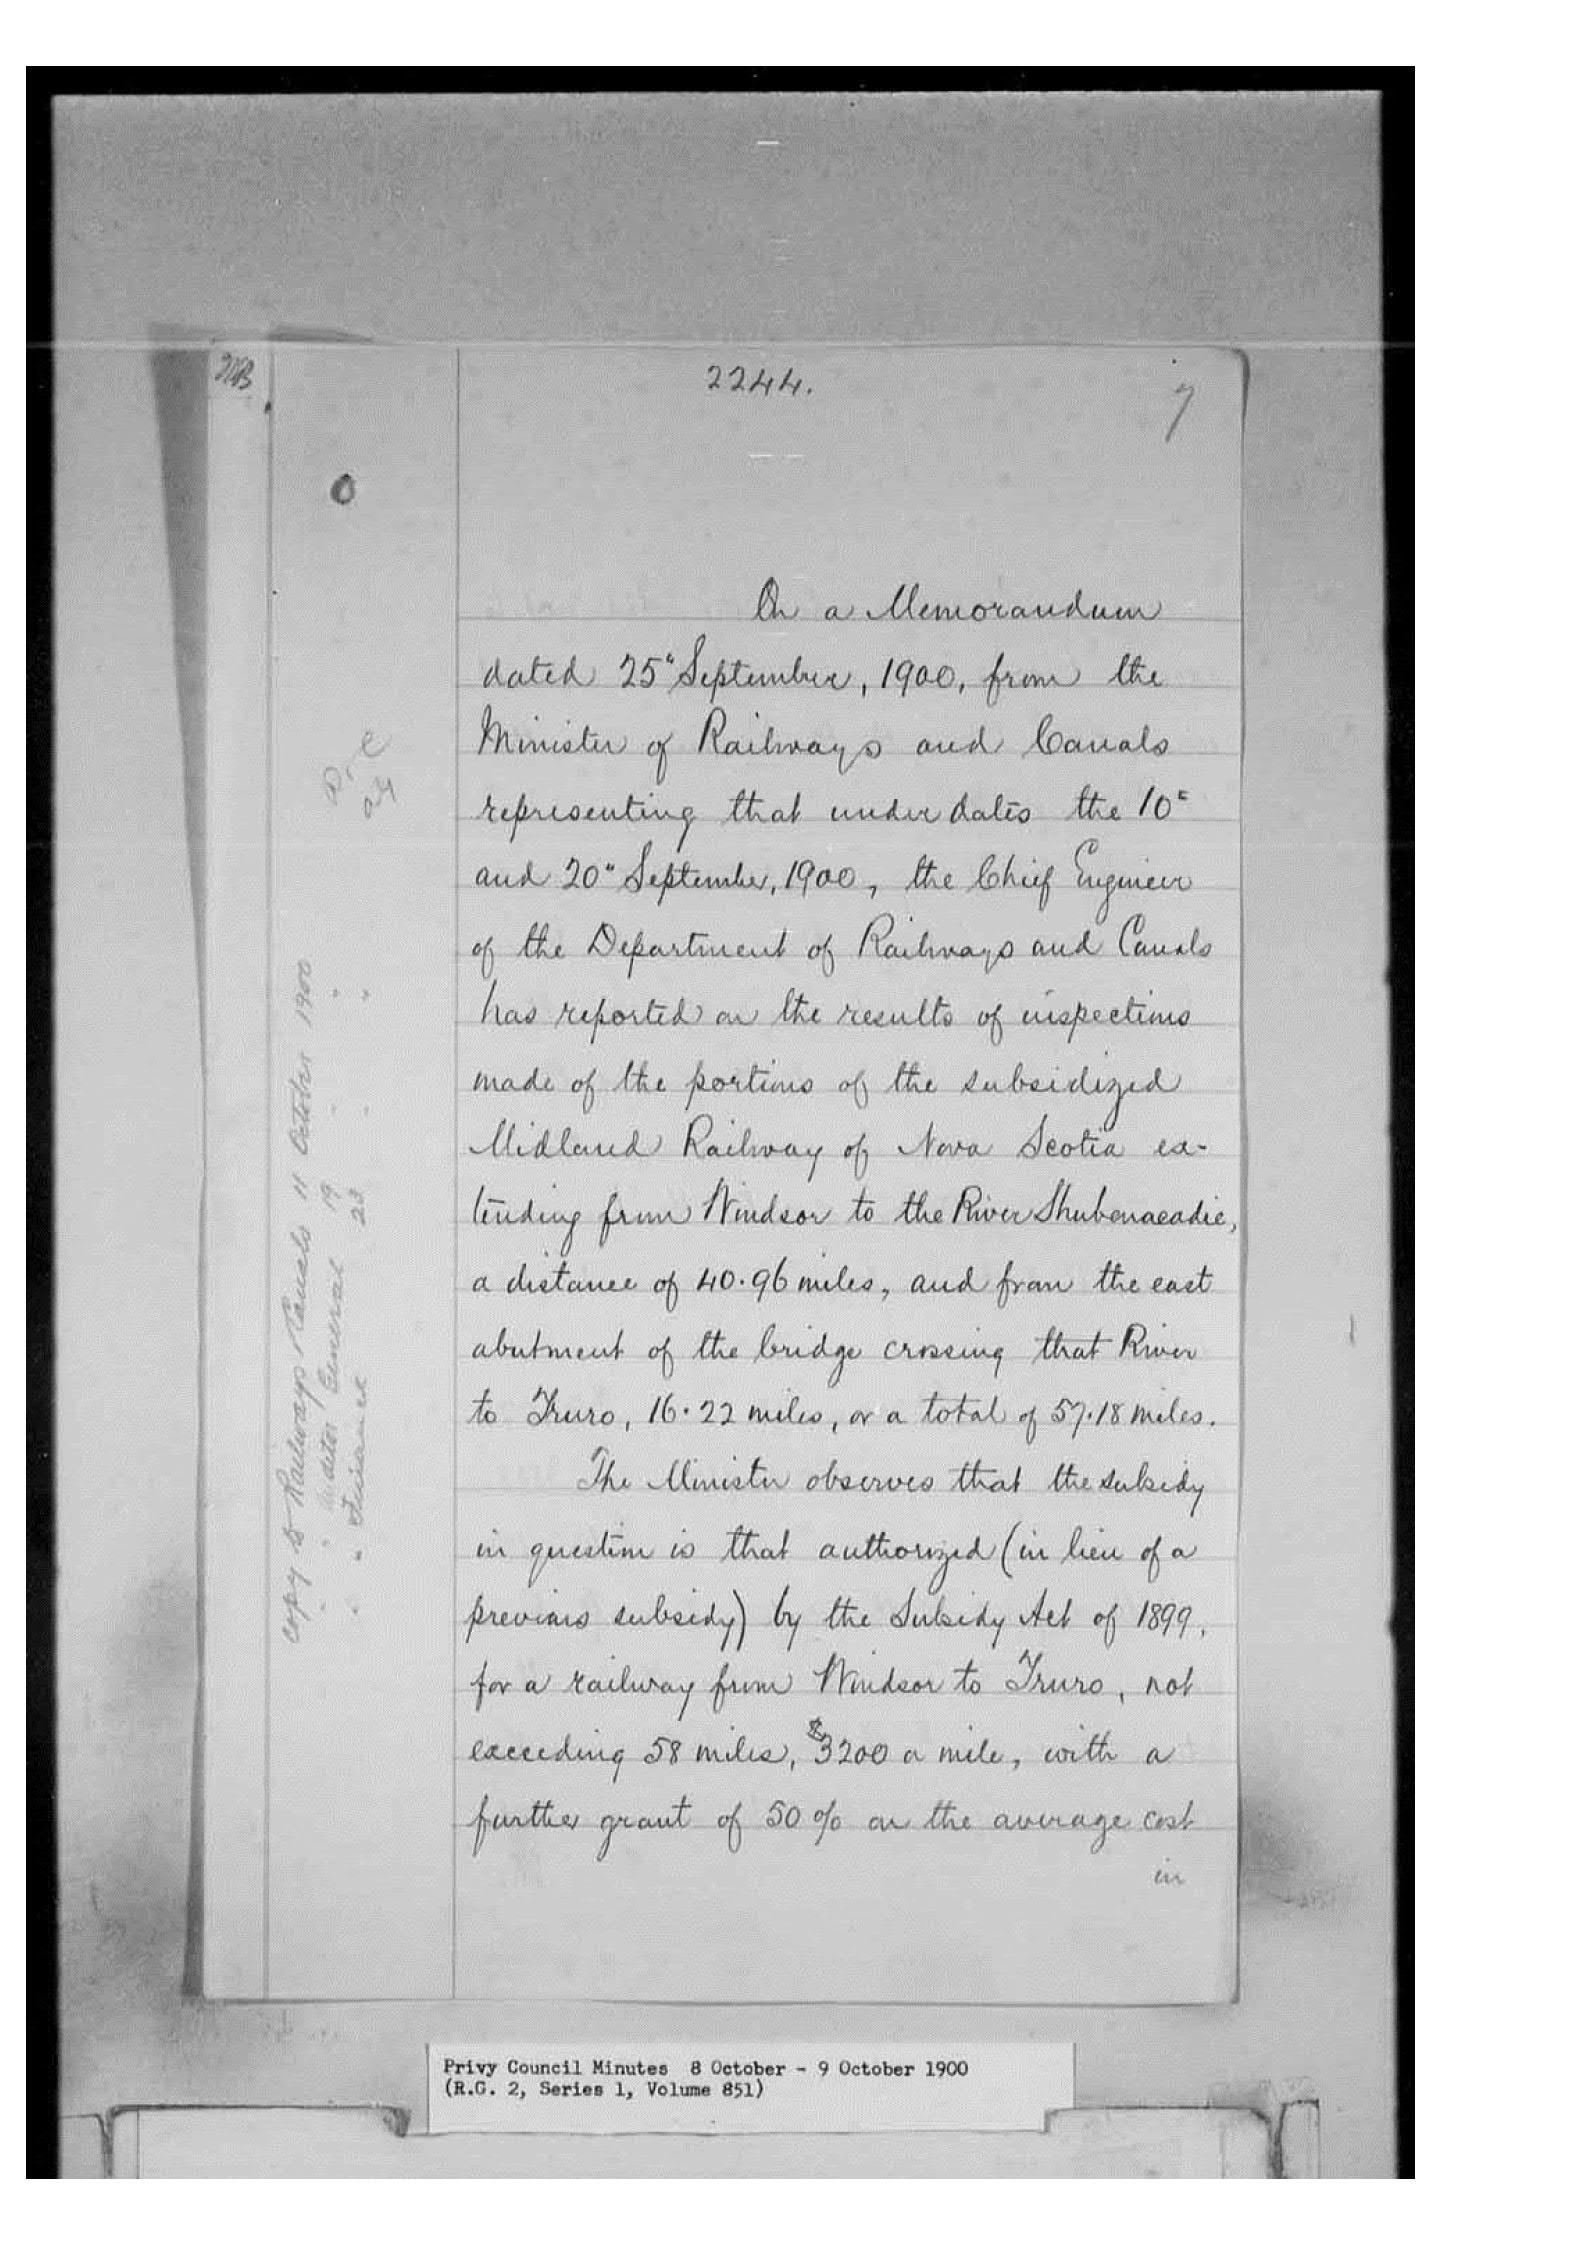 2244.
7
On a Memorandum
dated 25" September, 1900, from the
Minister of Railways and Canals
representing that under dates the 10"
and 20" September, 1900, the Chief Engineer
of the Department of Railways and Canals
has reported on the results of inspections
made of the portions of the subsidized
Midland Railway of Nova Scotia ex-
tending from Windsor to the River Shubenacadie,
a distance of 40.96 miles, and from the east
abutment of the bridge crossing that River
to Truro, 16.22 miles, or a total of 57.18 miles.
The Minister observes that the subsidy
in question is that authorized (in lieu of a
previous subsidy) by the Subsidy Act of 1899,
for a railway from Windsor to Truro, not
exceeding 58 miles, $3200 a mile, with a
further grant of 50 % on the average cost
in
copy to Railways & Canals 11 October 1900
" " Auditor General 19 " "
" " Finance 23 " "
Privy Council Minutes 8 October - 9 October 1900
(R.G. 2, Series 1, Volume 851)